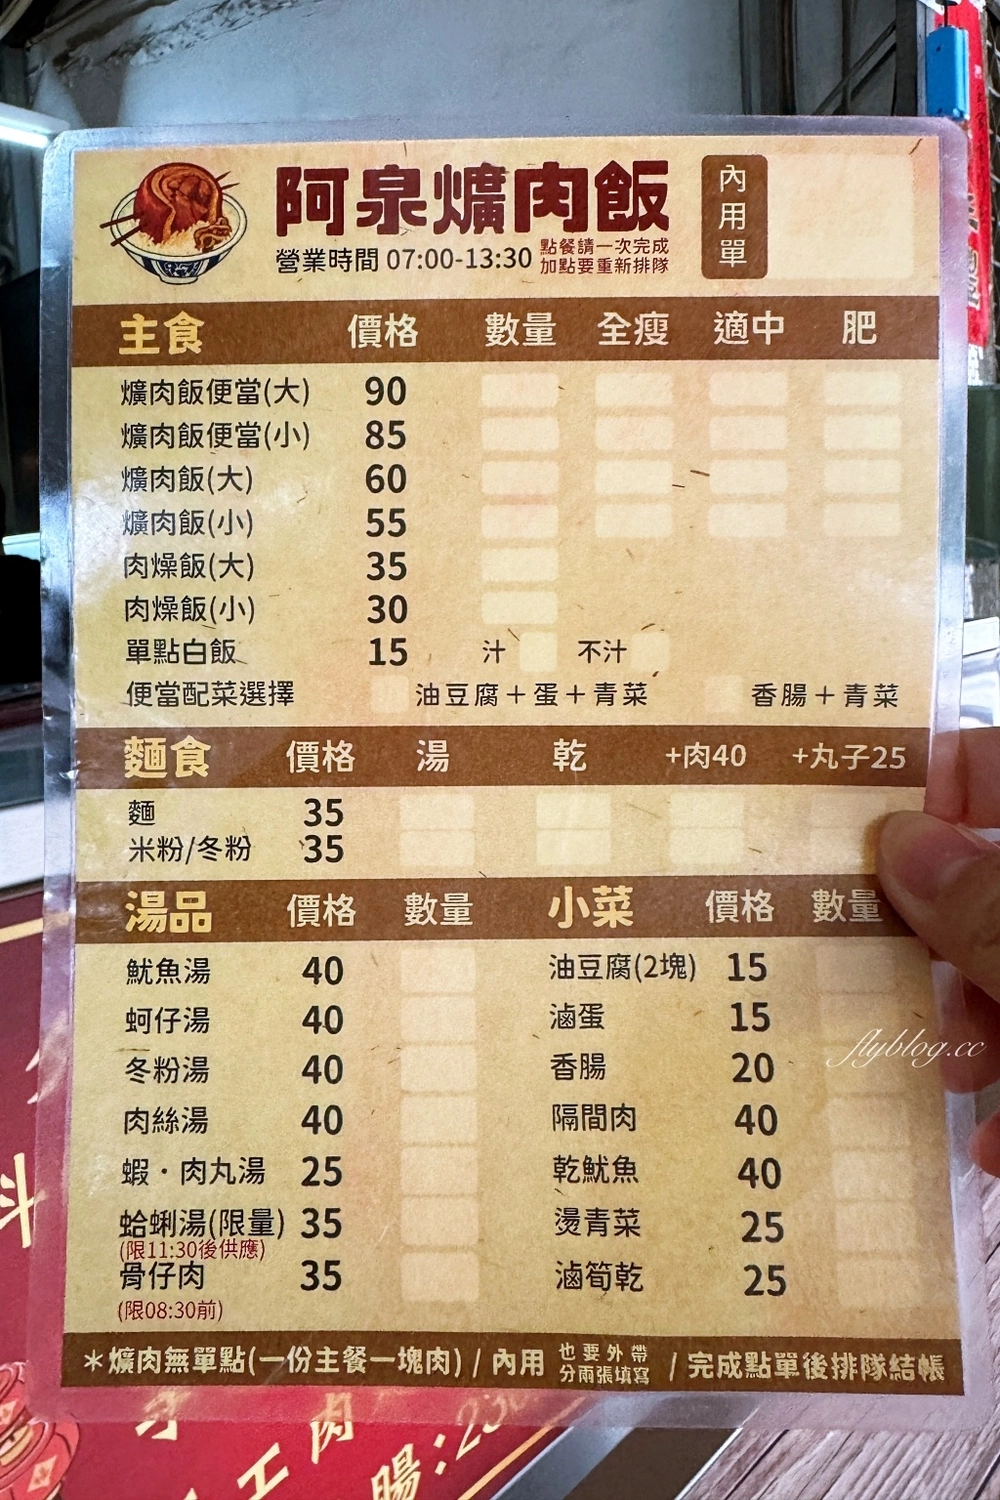 阿泉爌肉飯
營業時間 07:00-13:30
點餐請一次完成
加點要重新排隊
內用單
主食 價格 數量 全瘦 適中 肥
爌肉飯便當(大) 90
爌肉飯便當(小) 85
爌肉飯(大) 60
爌肉飯(小) 55
肉燥飯(大) 35
肉燥飯(小) 30
單點白飯 15 汁 不汁
便當配菜選擇 油豆腐＋蛋＋青菜 香腸＋青菜
麵食 價格 湯 乾 +肉40 +丸子25
麵 35
米粉/冬粉 35
湯品 價格 數量 小菜 價格 數量
魷魚湯 40 油豆腐(2塊) 15
蚵仔湯 40 滷蛋 15
冬粉湯 40 香腸 20
肉絲湯 40 隔間肉 40
蝦・肉丸湯 25 乾魷魚 40
蛤蜊湯(限量) 35 燙青菜 25
(限11:30後供應)
骨仔肉 35 滷筍乾 25
(限08:30前)
＊爌肉無單點(一份主餐一塊肉) / 內用 也要外帶分兩張填寫 / 完成點單後排隊結帳
flyblog.cc
腸:23